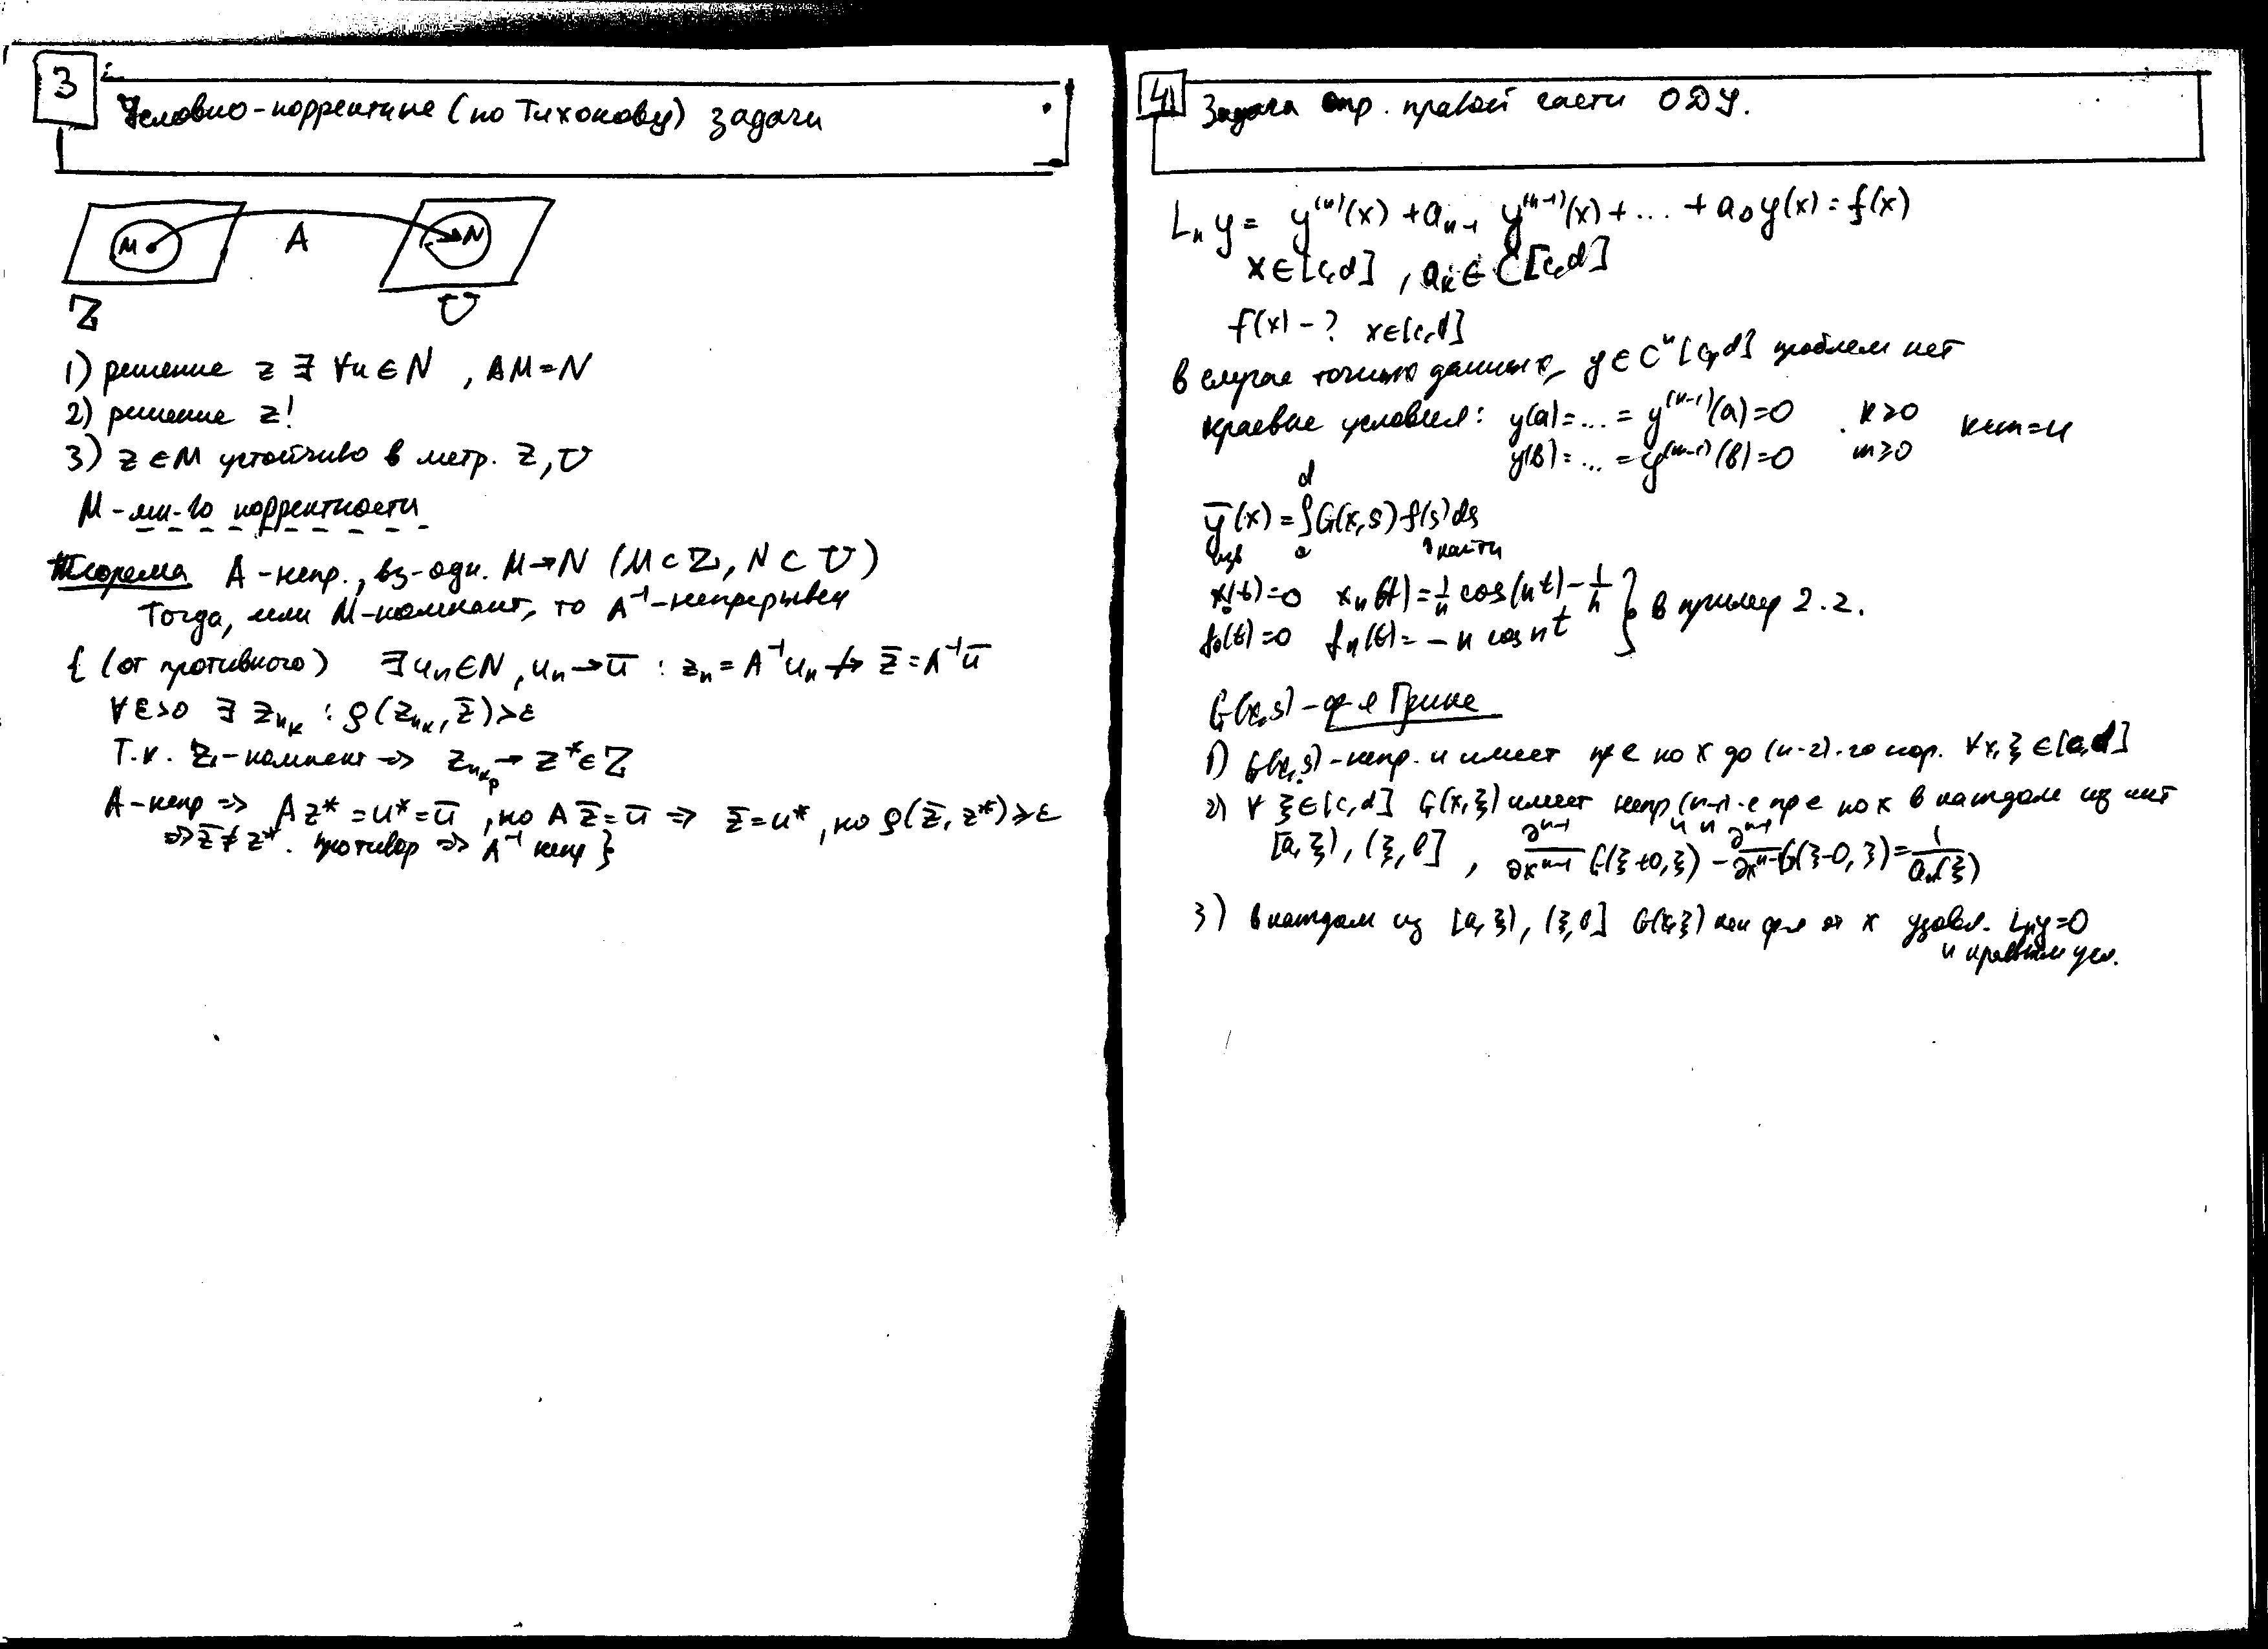 3
Условно-корректные (по Тихонову) задачи
M A N
Z U
1) решение z ∃ ∀u ∈ N , AM = N
2) решение z!
3) z ∈ M устойчиво в метр. Z, U
M - мн-во корректности
Теорема A - непр., вз-одн. M → N (M ⊂ Z, N ⊂ U)
Тогда, если M - компакт, то A⁻¹ - непрерывен
{ (от противного) ∃ uₙ ∈ N , uₙ → ū : zₙ = A⁻¹uₙ ↛ z̄ = A⁻¹ū
∀ ε>0 ∃ z_{n_k} : ρ(z_{n_k}, z̄) > ε
Т.к. Z - компакт => z_{n_{k_p}} → z* ∈ Z
A - непр => Az* = u* = ū , но A z̄ = ū => z̄ = u* , но ρ(z̄, z*) ≥ ε
=> z̄ ≠ z*. противор => A⁻¹ непр }
4 Задача опр. правой части ОДУ.
Lₙ y = y⁽ⁿ⁾(x) + aₙ₋₁ y⁽ⁿ⁻¹⁾(x) + ... + a₀ y(x) = f(x)
x ∈ [c,d] , aₖ ∈ C[c,d]
f(x) - ? x ∈ [c,d]
в случае точных данных, y ∈ Cⁿ[c,d] проблем нет
краевые условия: y(a) = ... = y⁽ᵏ⁻¹⁾(a) = 0 k ≥ 0 k+m=n
y(b) = ... = y⁽ᵐ⁻¹⁾(b) = 0 m ≥ 0
ȳ(x) = ∫ₐᵈ G(x,s) f(s) ds
изв ↑ найти
x₀(t) = 0 xₙ(t) = 1/n cos(nt) - 1/n } в пример 2.2.
f₀(t) = 0 fₙ(t) = - n cos nt
G(x,s) - ф-я Грина
1) G(x,s) - непр. и имеет пр-е по x до (n-2)-го пор. ∀x,ξ ∈ [a,d]
2) ∀ ξ ∈ [c,d] G(x,ξ) имеет непр (n-1)-е пр-е по x в каждом из инт
[a,ξ), (ξ,b] , ∂ⁿ⁻¹/∂xⁿ⁻¹ G(ξ+0,ξ) - ∂ⁿ⁻¹/∂xⁿ⁻¹ G(ξ-0,ξ) = 1/aₙ(ξ)
3) в каждом из [a,ξ), (ξ,b] G(x,ξ) как ф-я от x удовл. Lₙy=0
и краевым усл.